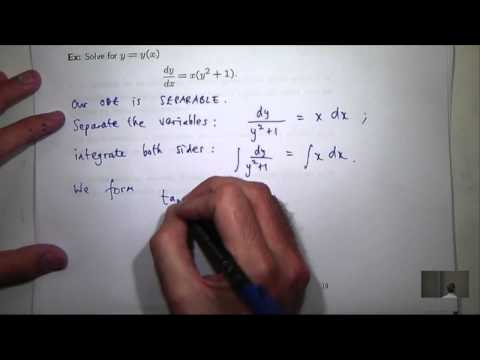 Ex: Solve for y = y(x)
dy/dx = x(y² + 1).
Our ODE is SEPARABLE.
Separate the variables: dy/(y²+1) = x dx ;
integrate both sides: ∫ dy/(y²+1) = ∫ x dx.
We form